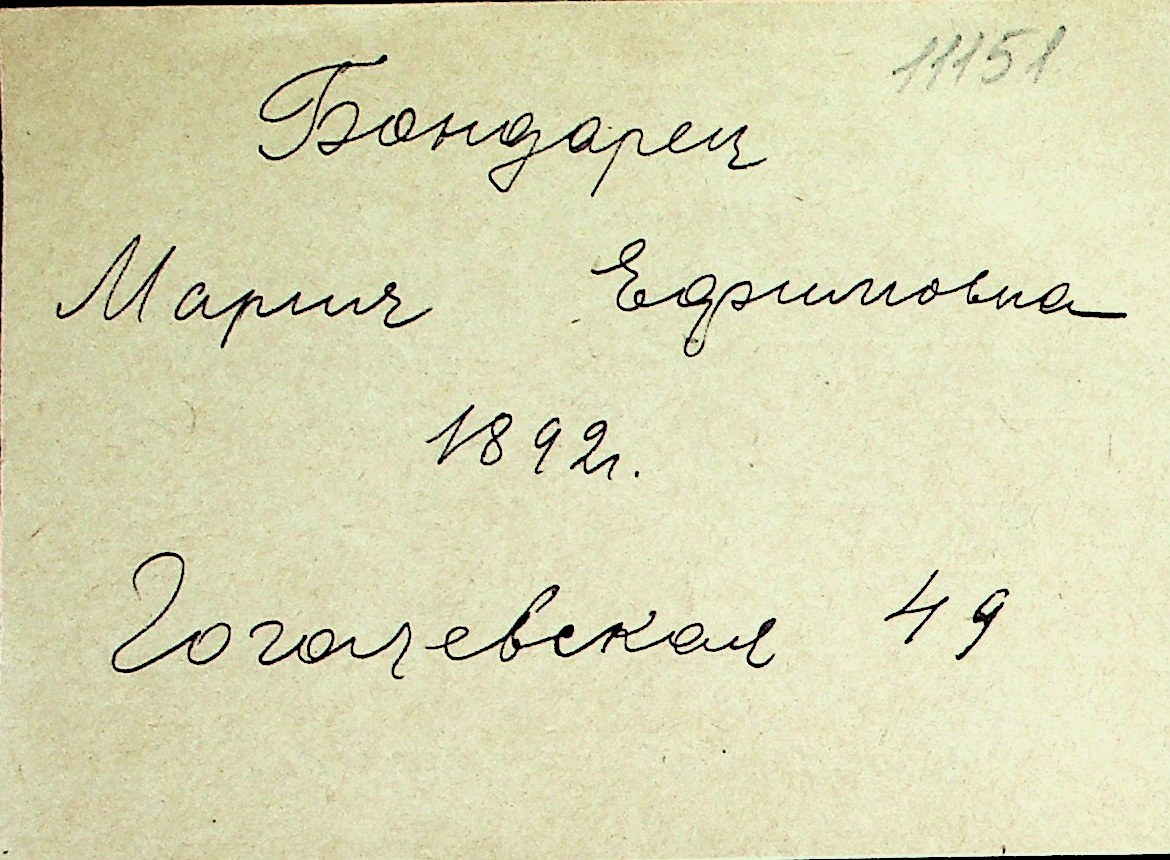 11151
Бондарец
Мария Ефимовна
1892г.
Гоголевская 49